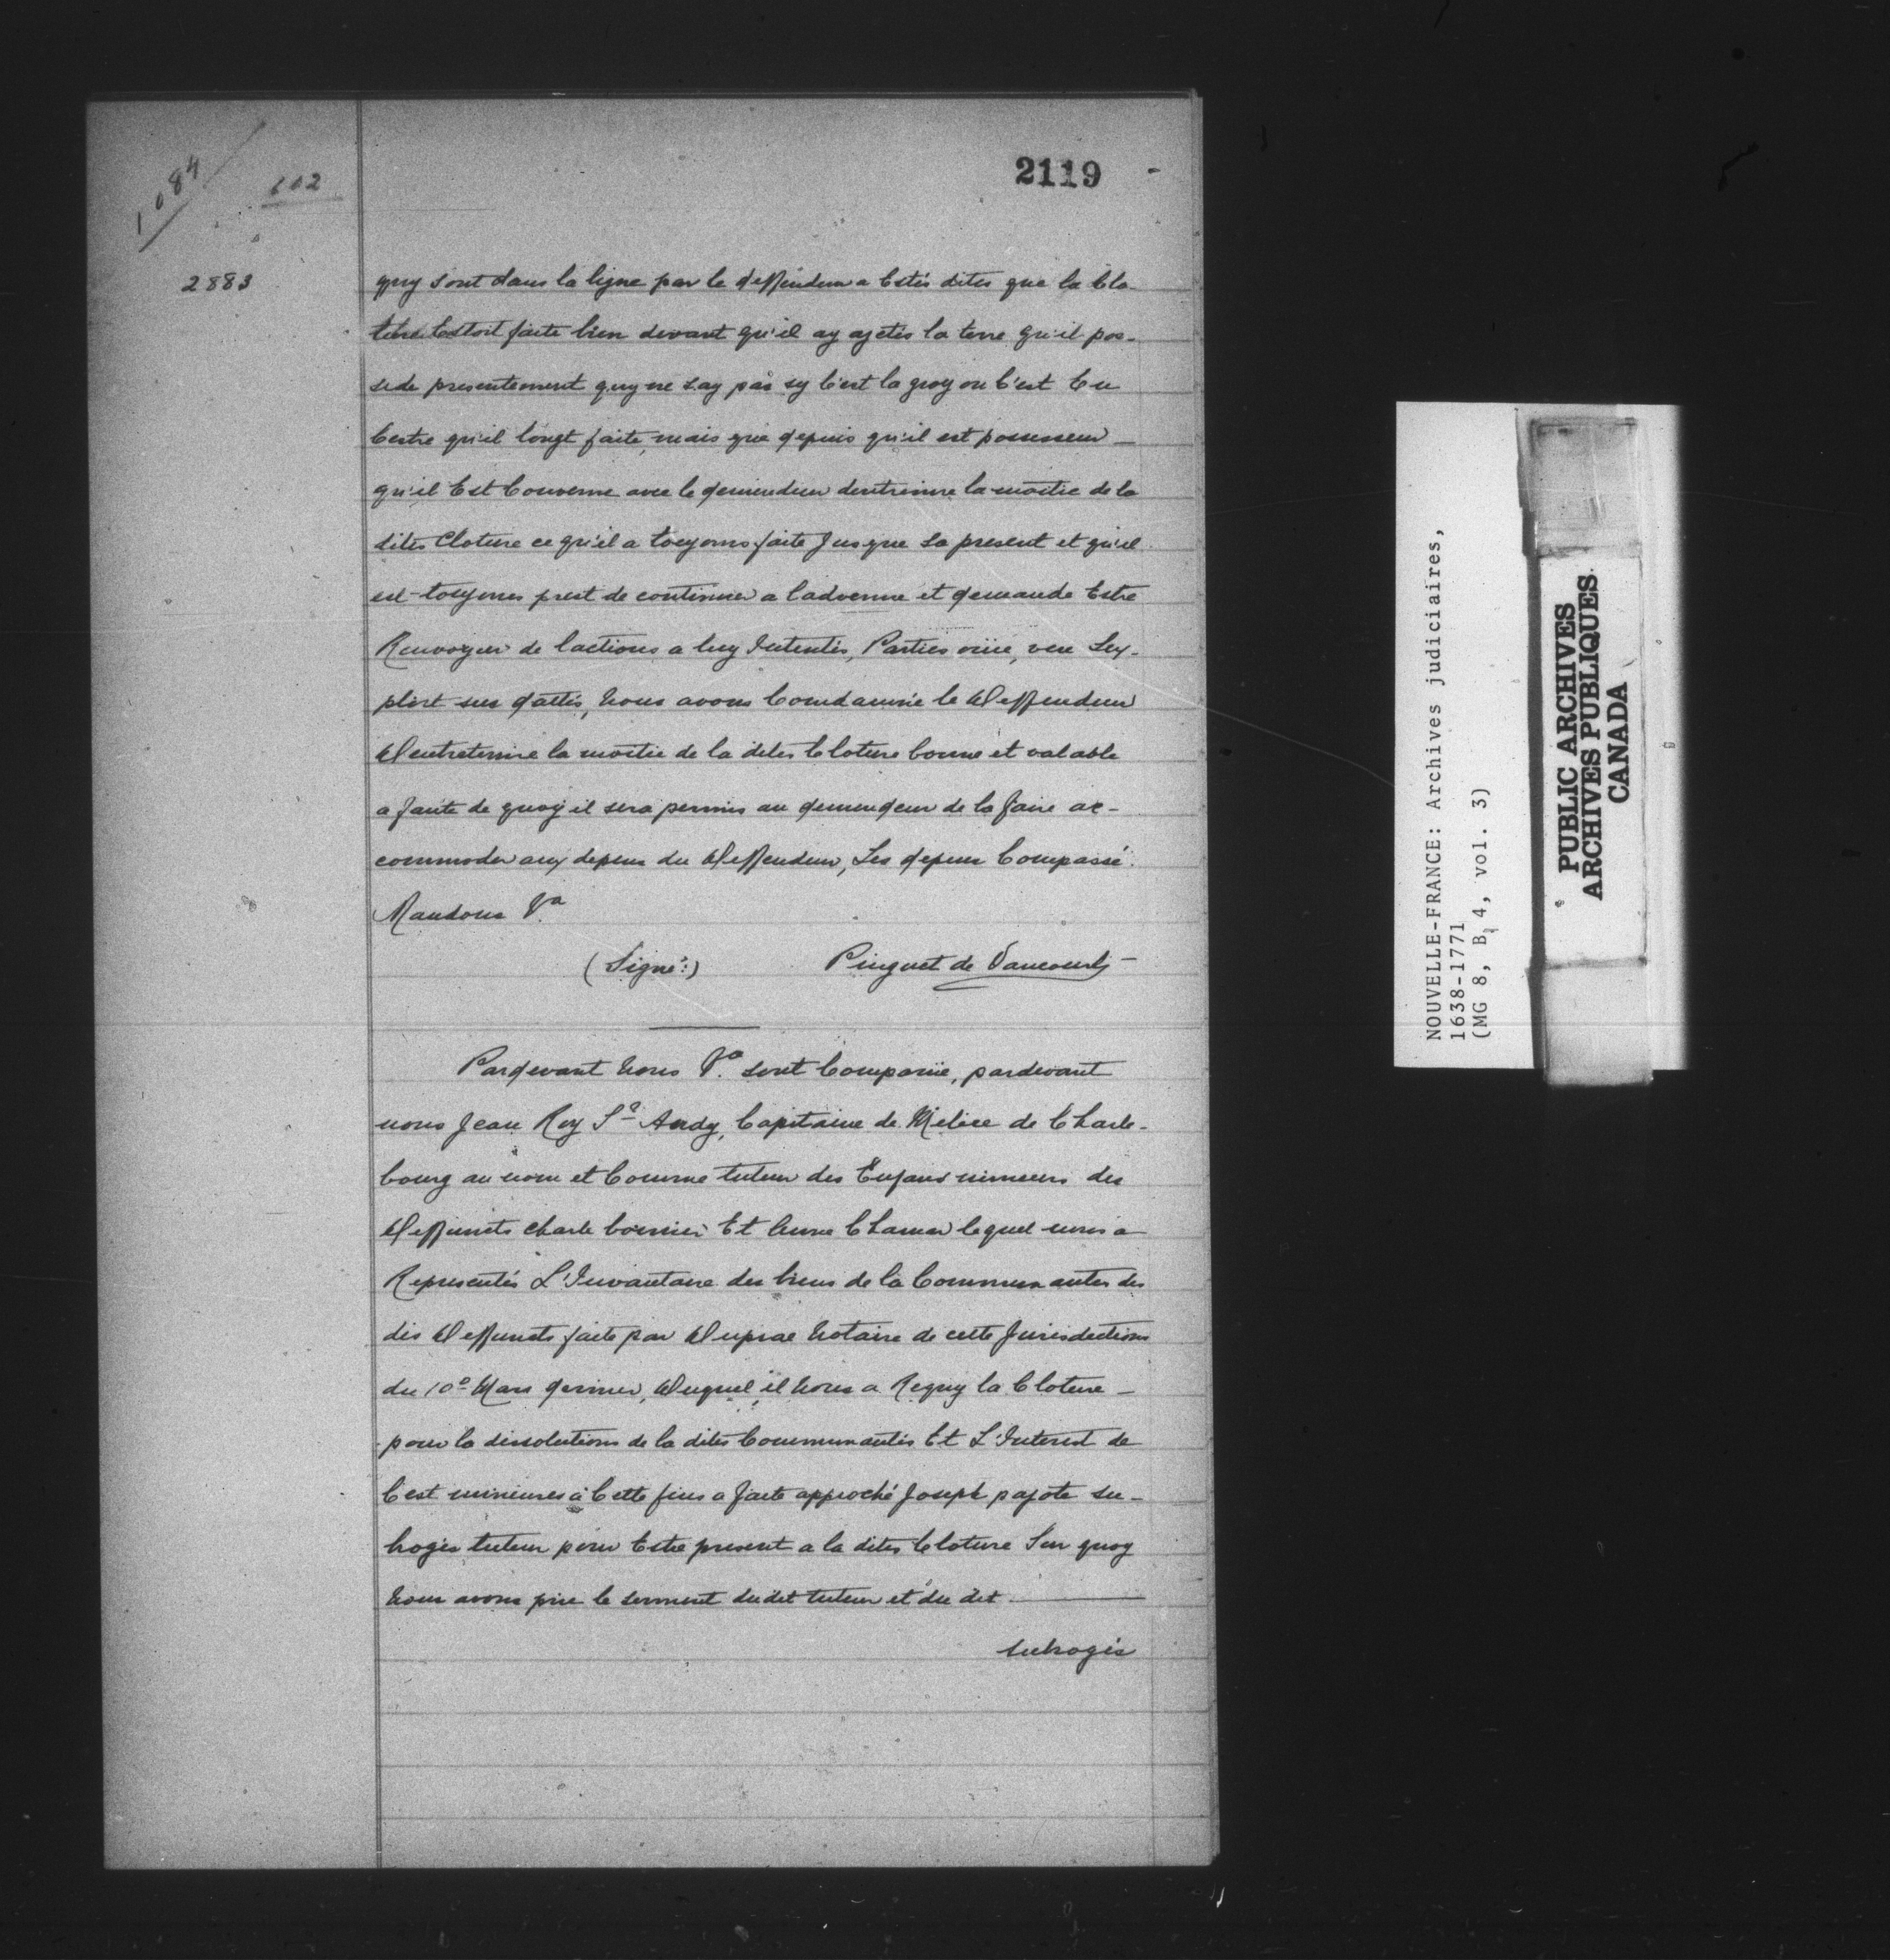 1084
602
2119
2883
quy sont dans la ligne par le deffendeur a Estés dites que la Clo-
ture Estoit faite bien devant qu'il ay ajetés la terre qu'il pos-
sede presentement quy ne say pas sy C'est la quoy ou C'est Eu
Cestre qu'il l'ongt faite, mais que depuis qu'il est possesseur
qu'il Est Convenue avec le demendeur dentrenire la moitie de la
dites Cloture ce qu'il a toujours faite Jusque Sa present et qu'il
est toujours prest de continuer a ladvenire et demande Estre
Renvoyer de lactions a luy Intentés, Parties oüie, veu Lex-
ploit sus dattés, Nous avons Comdamné le Deffendeur
Dentretenire la moitie de la dites Cloture bonne et valable
a faute de quoy il sera permis au demendeur de la faire ac-
commoder aux depens du Deffendeur, Les depens Compassé.
Mandons &a
(Signé:) Pinguet de Vaucours
Pardevant Nous &a. sont Comparüe, pardevant
nous Jean Roy St Audy, Capitaine de Milice de Charle-
bourg au nom et Comme tuteur des Enfans mineurs des
Deffunts charle
Et Anne lequel nous a
Representés L'Invantaire des biens de la Communautes des
dis Deffunts faite par Duprac Notaire de cette Jurisdections
du 10e Mars dernier, Duquel il Nous a Requy la Cloture
pour la dissolutions de la dites Communautés Et L'Interest de
Cest mineures à Cette fins a faite approché Joseph pajote su-
brogés tuteur pour Estre present a la dites Cloture Sur quoy
Nous avons prie le serment dudet tuteur et du det
subrogés
NOUVELLE-FRANCE: Archives judiciaires,
1638-1771
(MG 8, B 4, vol. 3)
PUBLIC ARCHIVES
ARCHIVES PUBLIQUES
CANADA